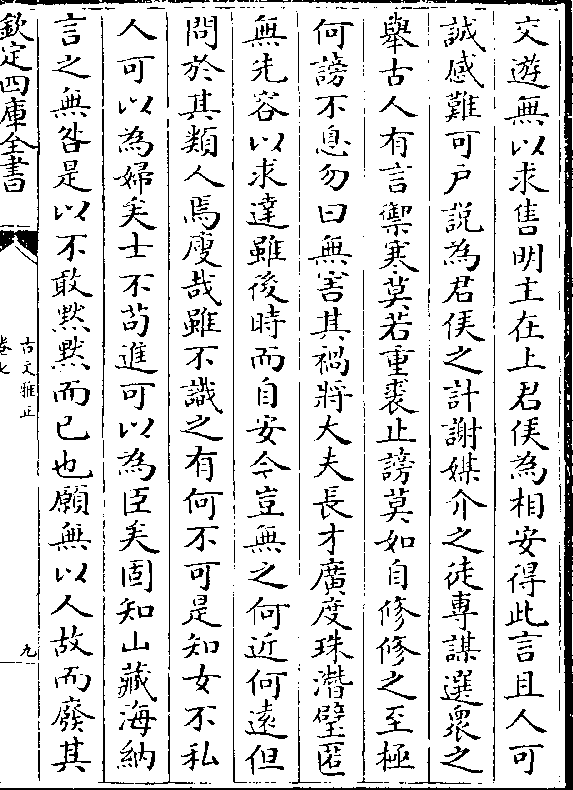 交遊無以求售明主在上君侯為相安得此言且人可
誠感難可戸説為君侯之計謝媒介之徒專謀選衆之
舉古人有言禦寒莫若重裘止謗莫如自修修之至極
何謗不息勿曰無害其禍將大夫長才廣度珠潛璧匿
無先容以求達雖後時而自安今豈無之何近何遠但
問於其類人焉廋哉雖不識之有何不可是知女不私
人可以為婦矣士不苟進可以為臣矣固知山藏海納
言之無咎是以不敢黙黙而已也願無以人故而廢其
欽定四庫全書
古文雅正
卷七
九